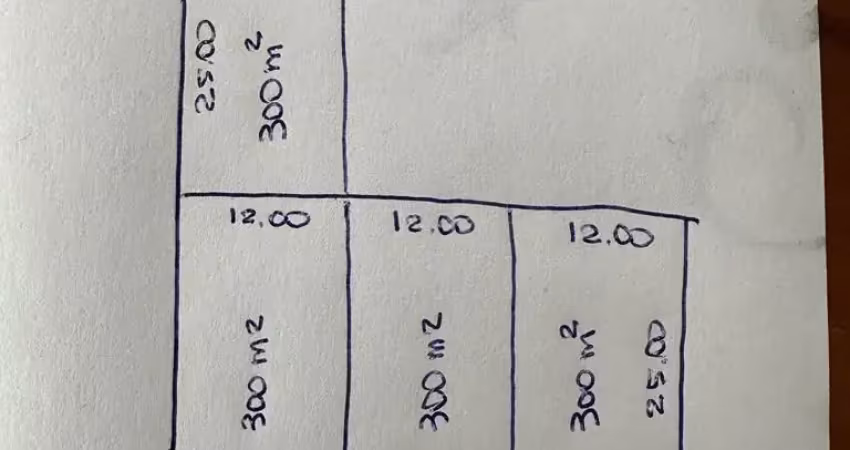 25.00
300 m²
12.00
12.00
12.00
300 m²
300 m²
300 m²
25.00